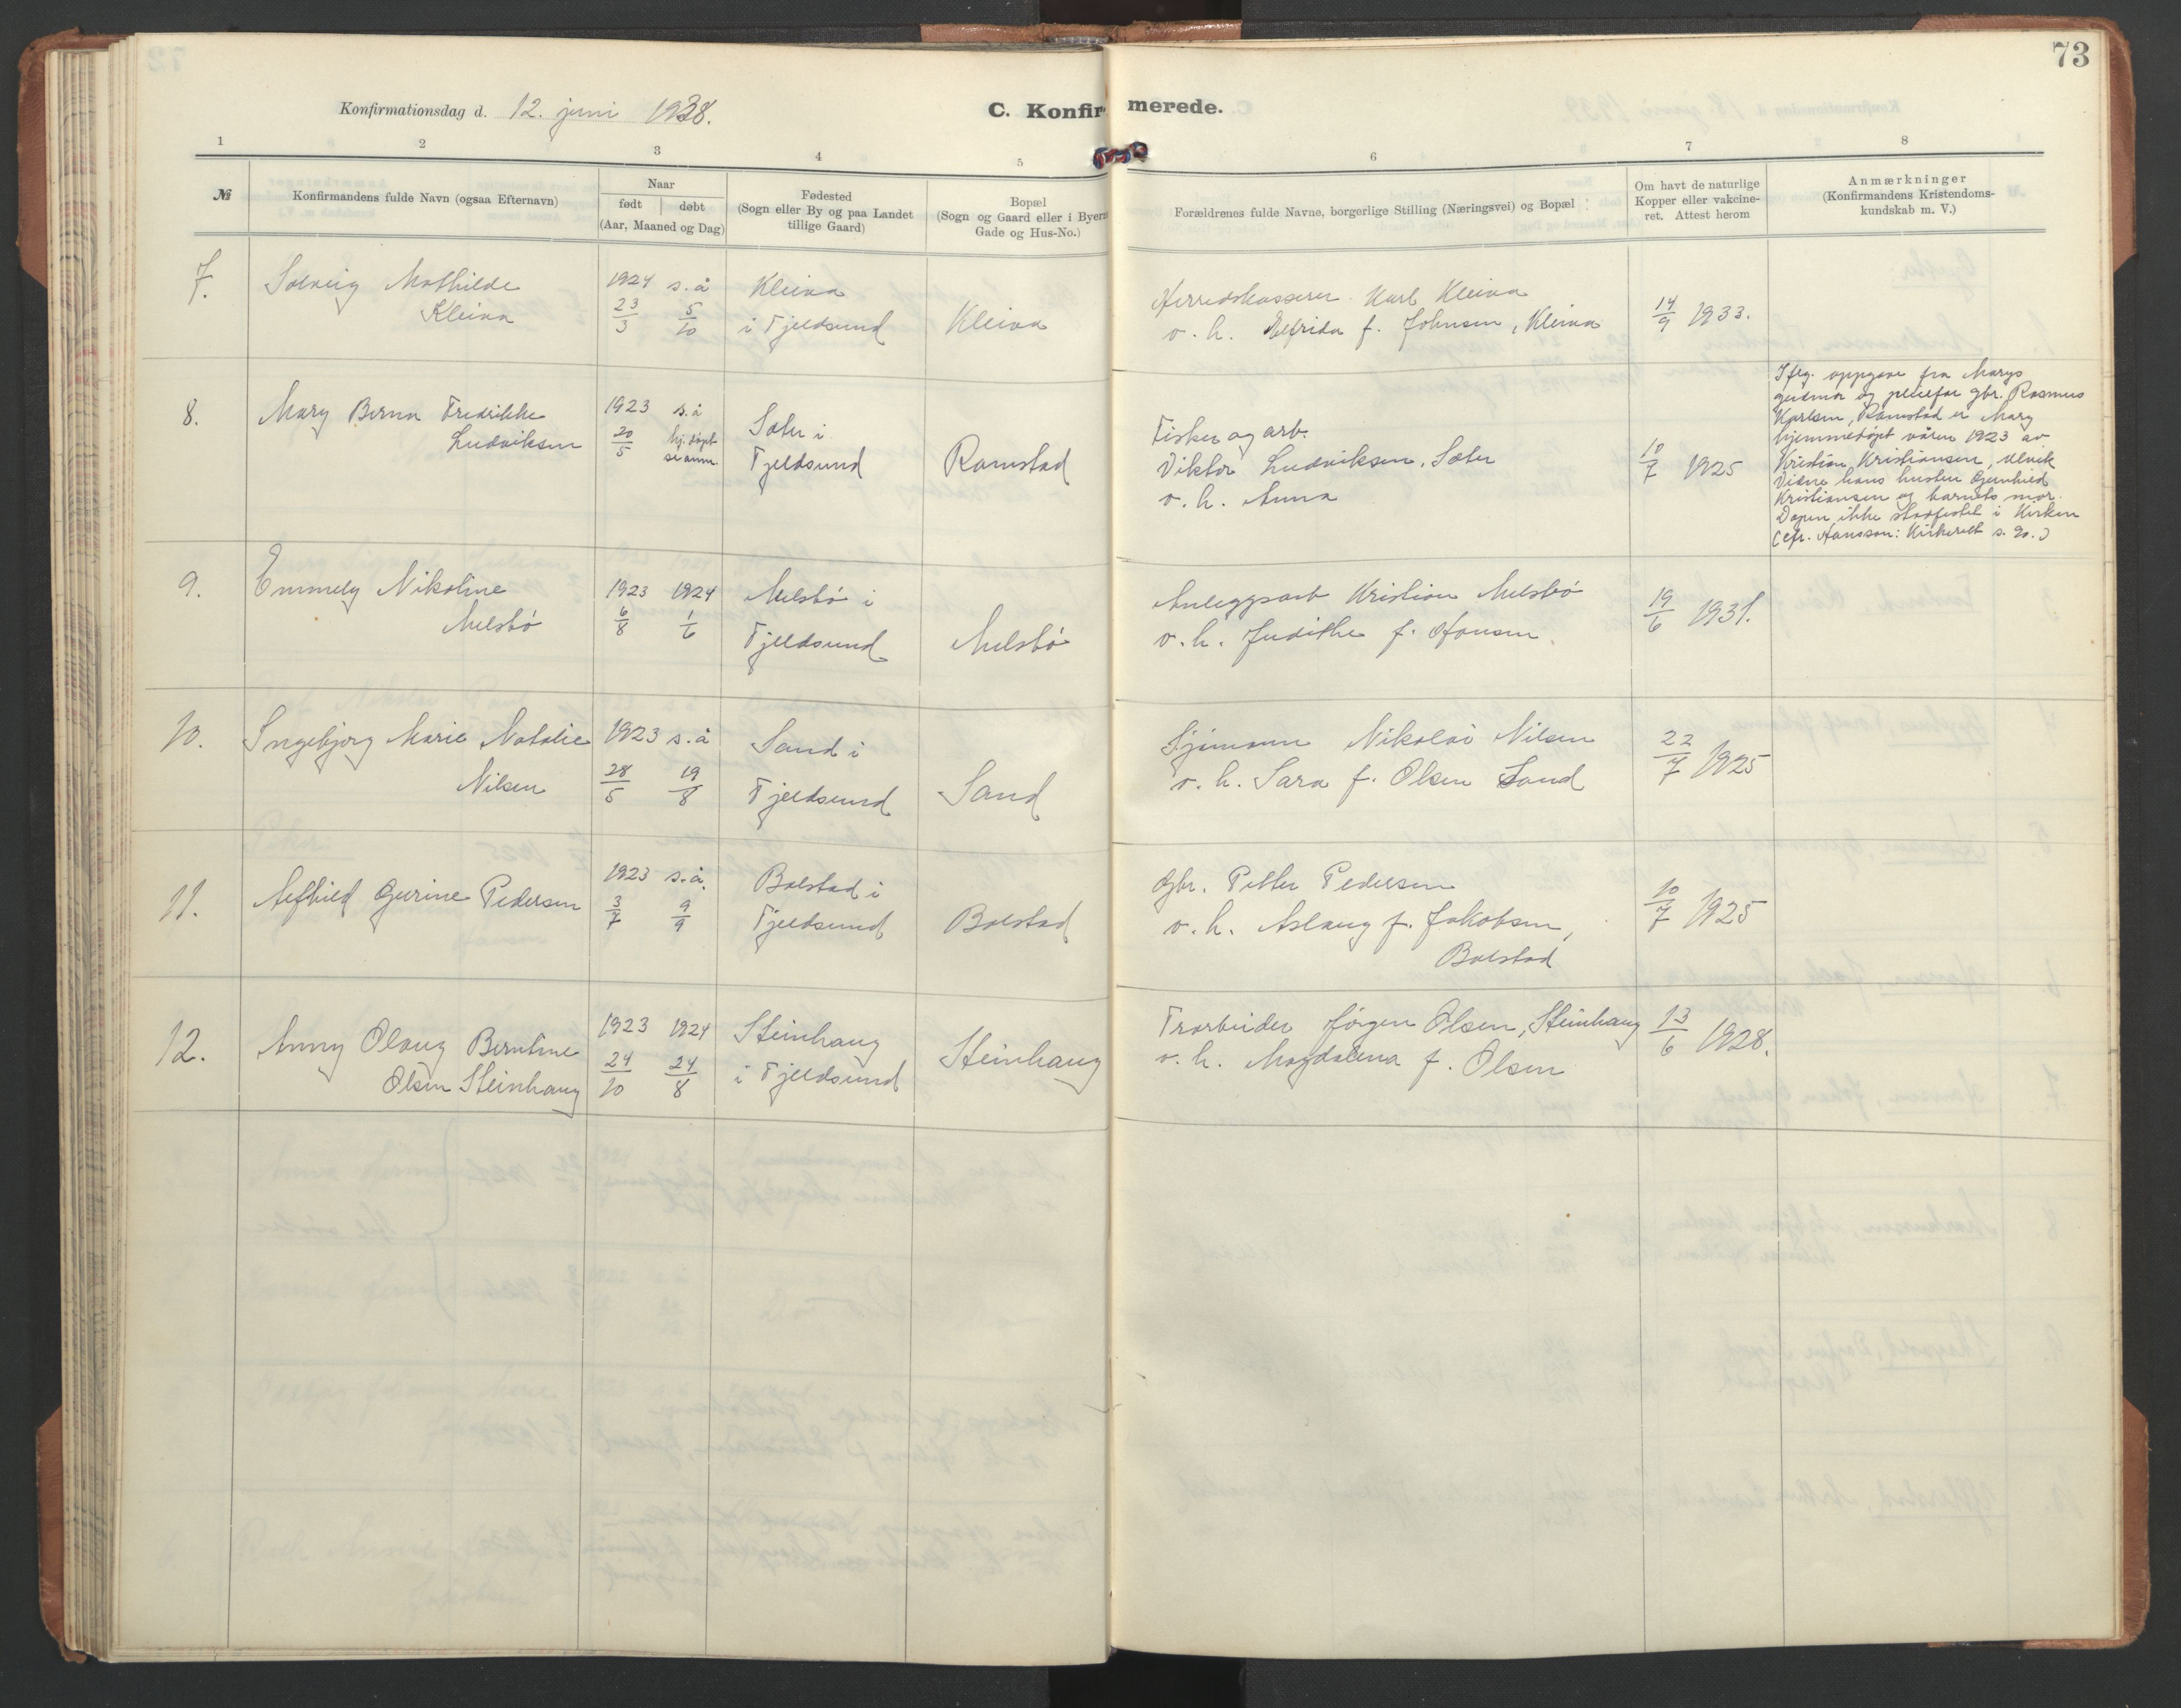 73
Konfirmationsdag d. 12. juni 1938.
C. Konfirmerede.
1 2 3 4 5 6 7 8
№
Konfirmandens fulde Navn (ogsaa Efternavn)
Naar
født | døbt
(Aar, Maaned og Dag)
Fødested
(Sogn eller By og paa Landet
tillige Gaard)
Bopæl
(Sogn og Gaard eller i Byern
Gade og Hus-No.)
Forældrenes fulde Navne, borgerlige Stilling (Næringsvei) og Bopæl
Om havt de naturlige
Kopper eller vakcine-
ret. Attest herom
Anmærkninger
(Konfirmandens Kristendoms-
kundskab m. V.)
7. Solveig Mathilde
Kleiva
1924 s. å
23/3 5/10
Kleiva
i Fjeldsund
Kleiva
Herredskasserer Karl Kleiva
o. h. Elfrida f. Johnsen, Kleiva
14/9 1933.
8. Mary Berna Fredrikke
Ludviksen
1923 s. å
20/5 hj. døpt
se anm.
Sæter i
Fjeldsund
Ramstad
Fisker og arb.
Viktor Ludviksen, Sæter
o. h. Anna
10/7 1925
Iflg. oppgave fra Marys
gudmor og pleiefar gbr. Rasmus
Karlsen, Ramstad er Mary
hjemmedøpt våren 1923 av
Kristian Kristiansen, Ulvik
Vidne hans hustru Gunhild
Kristiansen og barnets mor.
Dapen ikke stadfestet i Kirken
(cfr. Hansson: Kirkerett s. 90.)
9. Emmely Nikoline
Melsbø
1923 1924
6/8 1/6
Melsbø i
Fjeldsund
Melsbø
Anleggsarb Kristian Melsbø
o. h. Judithe f. Hansen.
19/6 1931.
10. Ingebjørg Marie Natalie
Nilsen
1923 s. å
28/5 19/8
Sand i
Fjeldsund
Sand
Sjømann Nikolai Nilsen
o. h. Sara f. Olsen Sand
22/7 1925
11. Alfhild Gurine Pedersen
1923 s. å.
3/7 9/9
Balstad i
Fjeldsund
Balstad
Gbr. Petter Pedersen
o. h. Aslaug f. Jakobsen,
Balstad
10/7 1925
12. Anny Olaug Berntine
Olsen Steinhaug
1923 1924
24/10 24/8
Steinhaug
i Fjeldsund
Steinhaug
Frarbeider Jørgen Olsen, Steinhaug
o. h. Magdalena f. Olsen
13/6 1928.